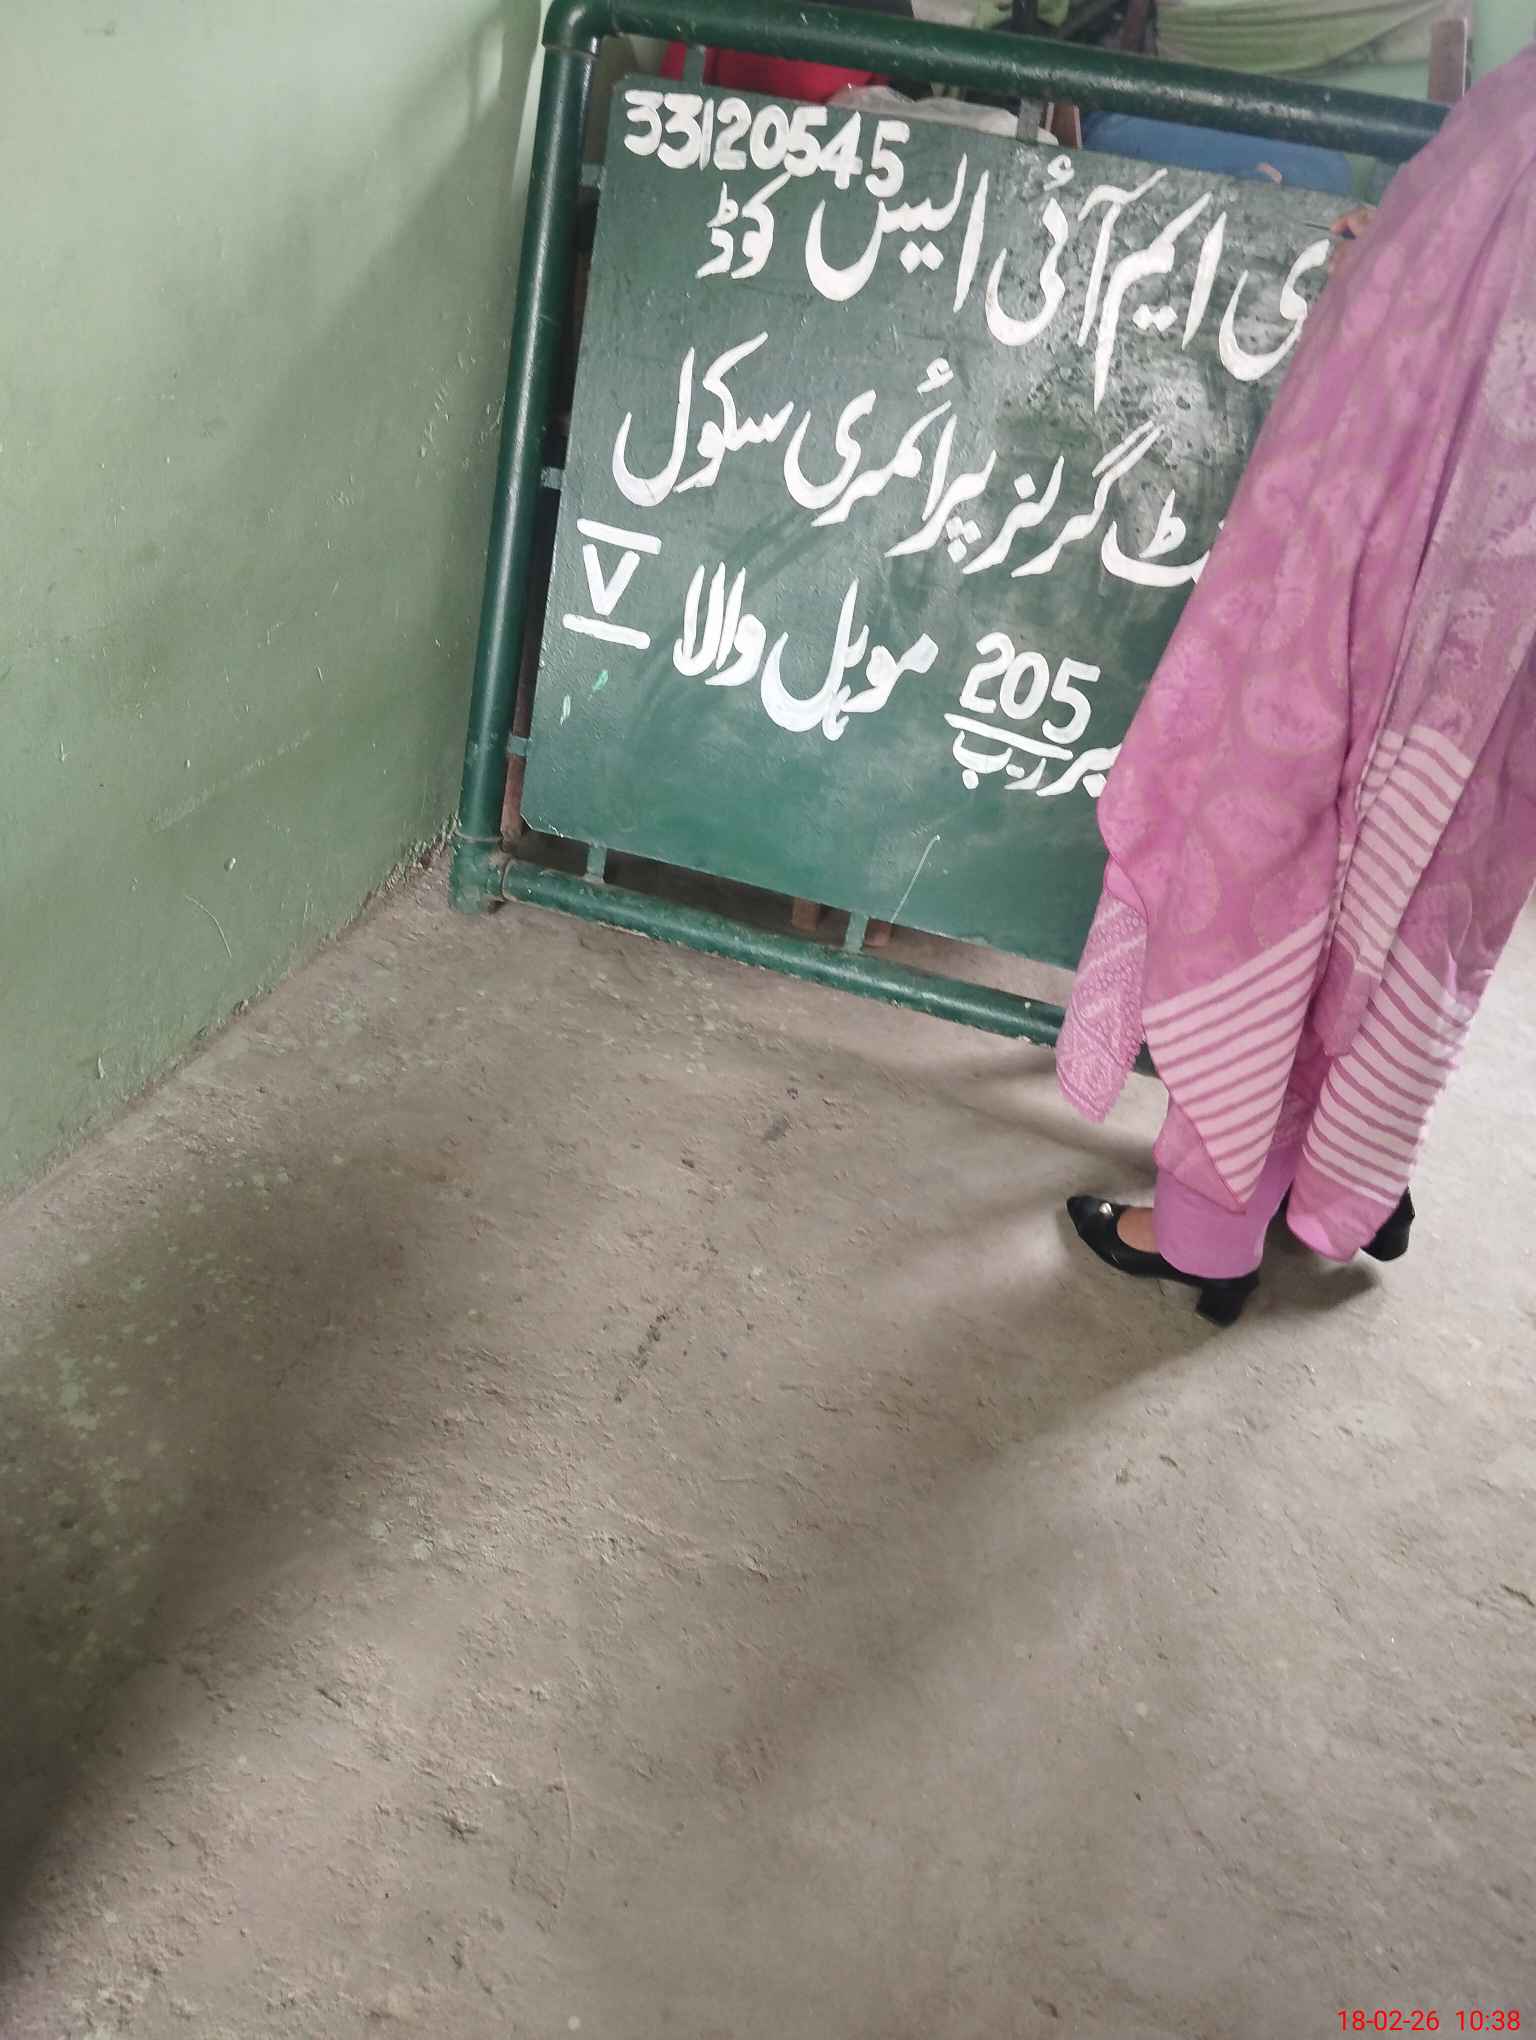 ی ایم آئی ایس کوڈ 33120545
گرلز پرائمری سکول
205 ر-ب موہل والا V
18-02-26 10:38